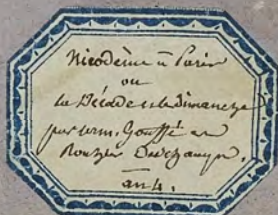 Nicodème à Paris
ou
la Décade et le Dimanche
par arm. Gouffé et
Rouzier Deschamps.
an 4.